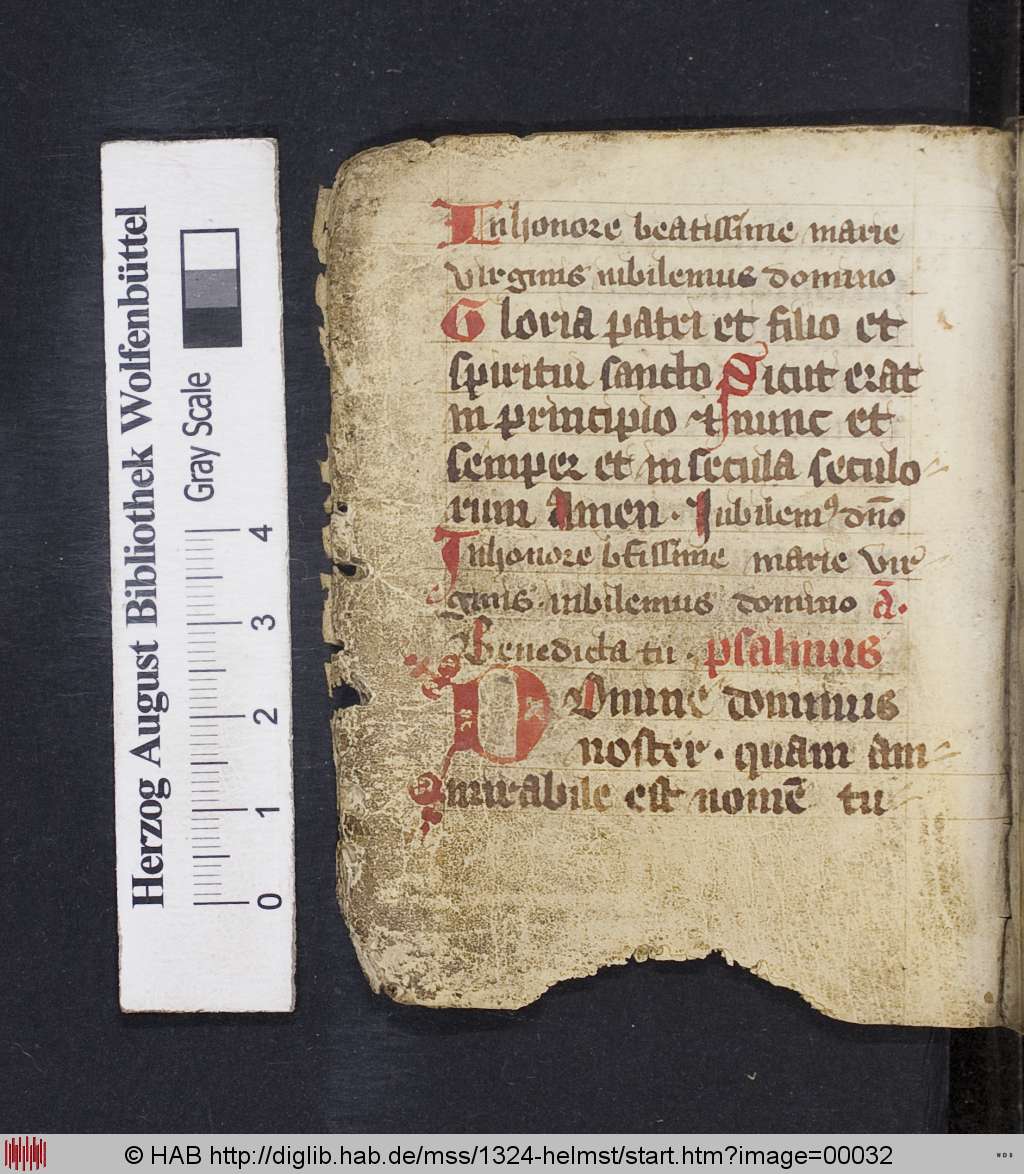 In honore beatissime marie
virginis iubilemus domino
Gloria patri et filio et
spiritui sancto Sicut erat
in principio et nunc et
semper et in secula seculo
rum Amen. Iubilemꝰ dn̄o
In honore bt̄issime marie vir
ginis. iubilemus domino ā.
Benedicta tu. psalmus
Domine dominus
noster. quam am
mirabile est nomē tu
Herzog August Bibliothek Wolfenbüttel
Gray Scale
0 1 2 3 4
© HAB http://diglib.hab.de/mss/1324-helmst/start.htm?image=00032
WDB